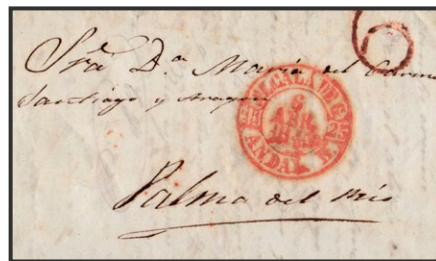 6
Sra. Dª. María del Carmen
Santiago y Aragon
ALCALA D G.
6
ABR
ANDAL. B.
Palma del Rio